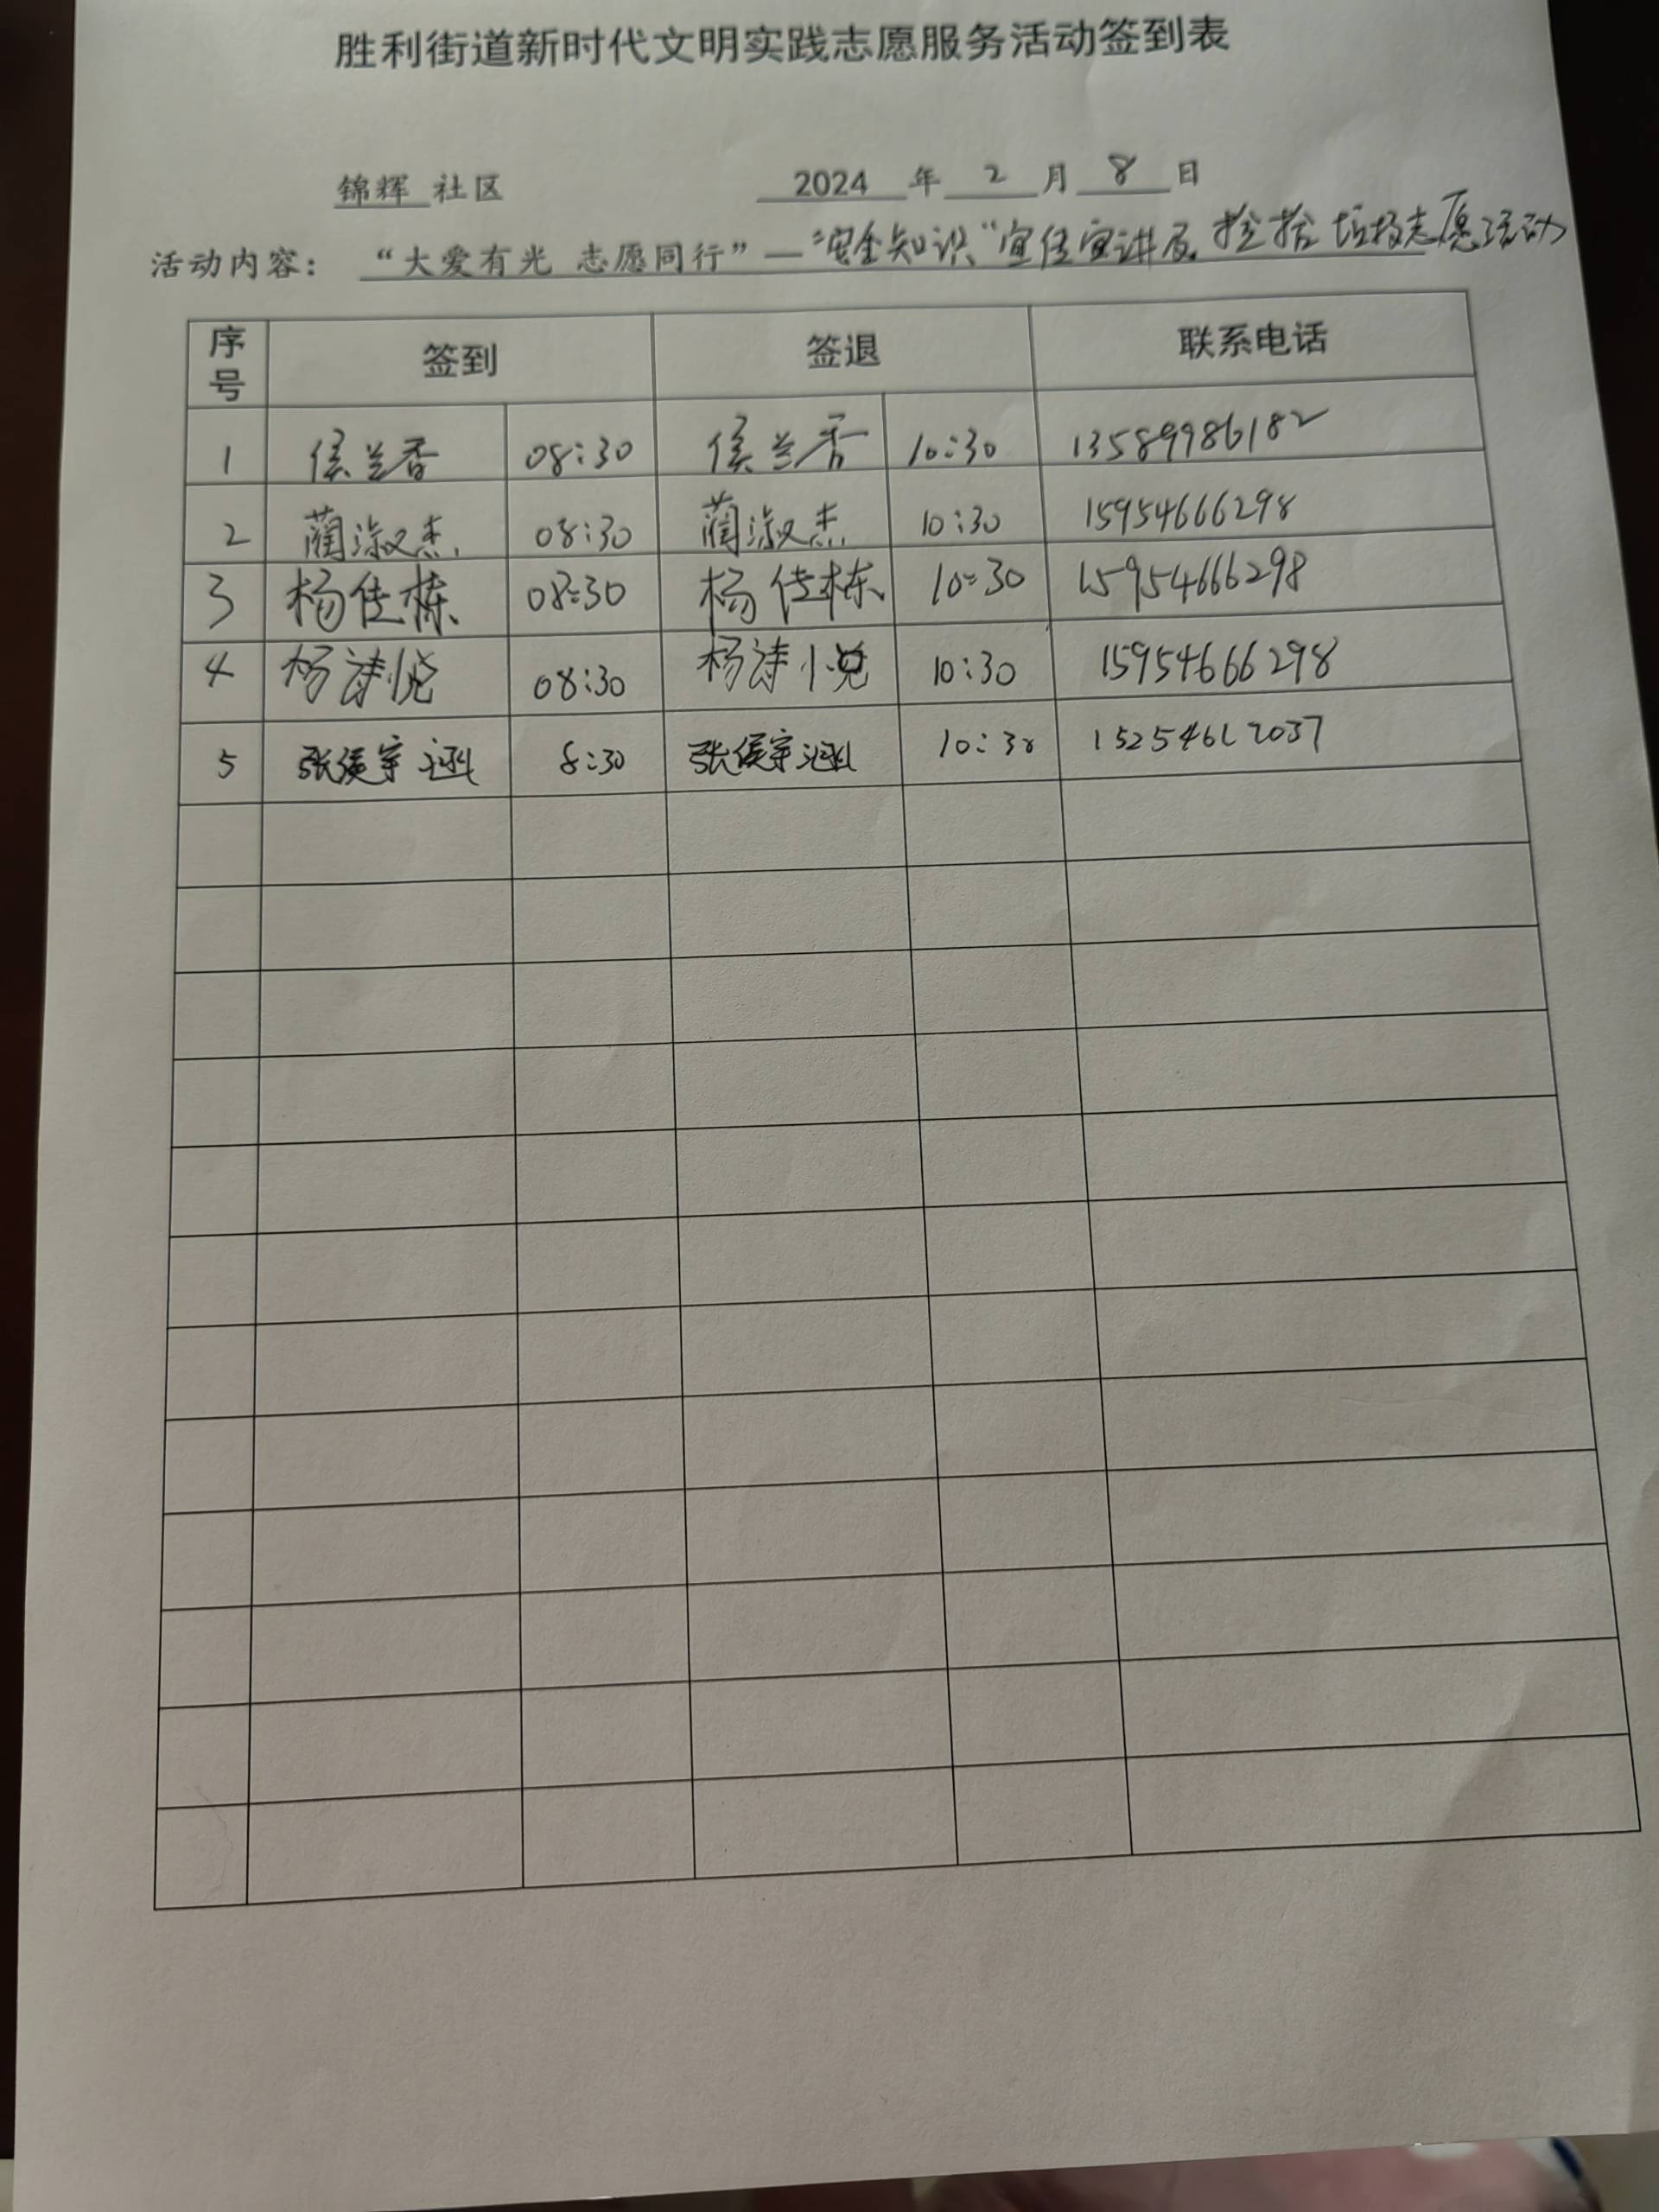 胜利街道新时代文明实践志愿服务活动签到表
锦辉 社区 2024 年 2 月 8 日
活动内容： “大爱有光 志愿同行”—“安全知识”宣传宣讲及捡拾垃圾志愿活动
序号 签到 签退 联系电话
1 侯兰香 08:30 侯兰香 10:30 13589986182
2 蔺淑杰 08:30 蔺淑杰 10:30 15954666298
3 杨佳栋 08:30 杨佳栋 10:30 15954666298
4 杨诗悦 08:30 杨诗悦 10:30 15954666298
5 张侯宇涵 8:30 张侯宇涵 10:30